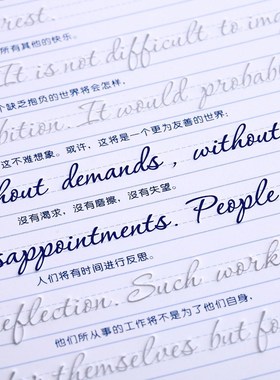 rest.
所有其他的快乐。
It is not difficult to im
个缺乏抱负的世界将会怎样，
bition. It would probabl
这不难想象。或许，这将是一个更为友善的世界：
hout demands, without
沒有渴求，沒有磨擦，沒有失望。
sappointments. People
人们将有时间进行反思。
eflection. Such work
他们所从事的工作将不是为了他们自身，
themselves but fo